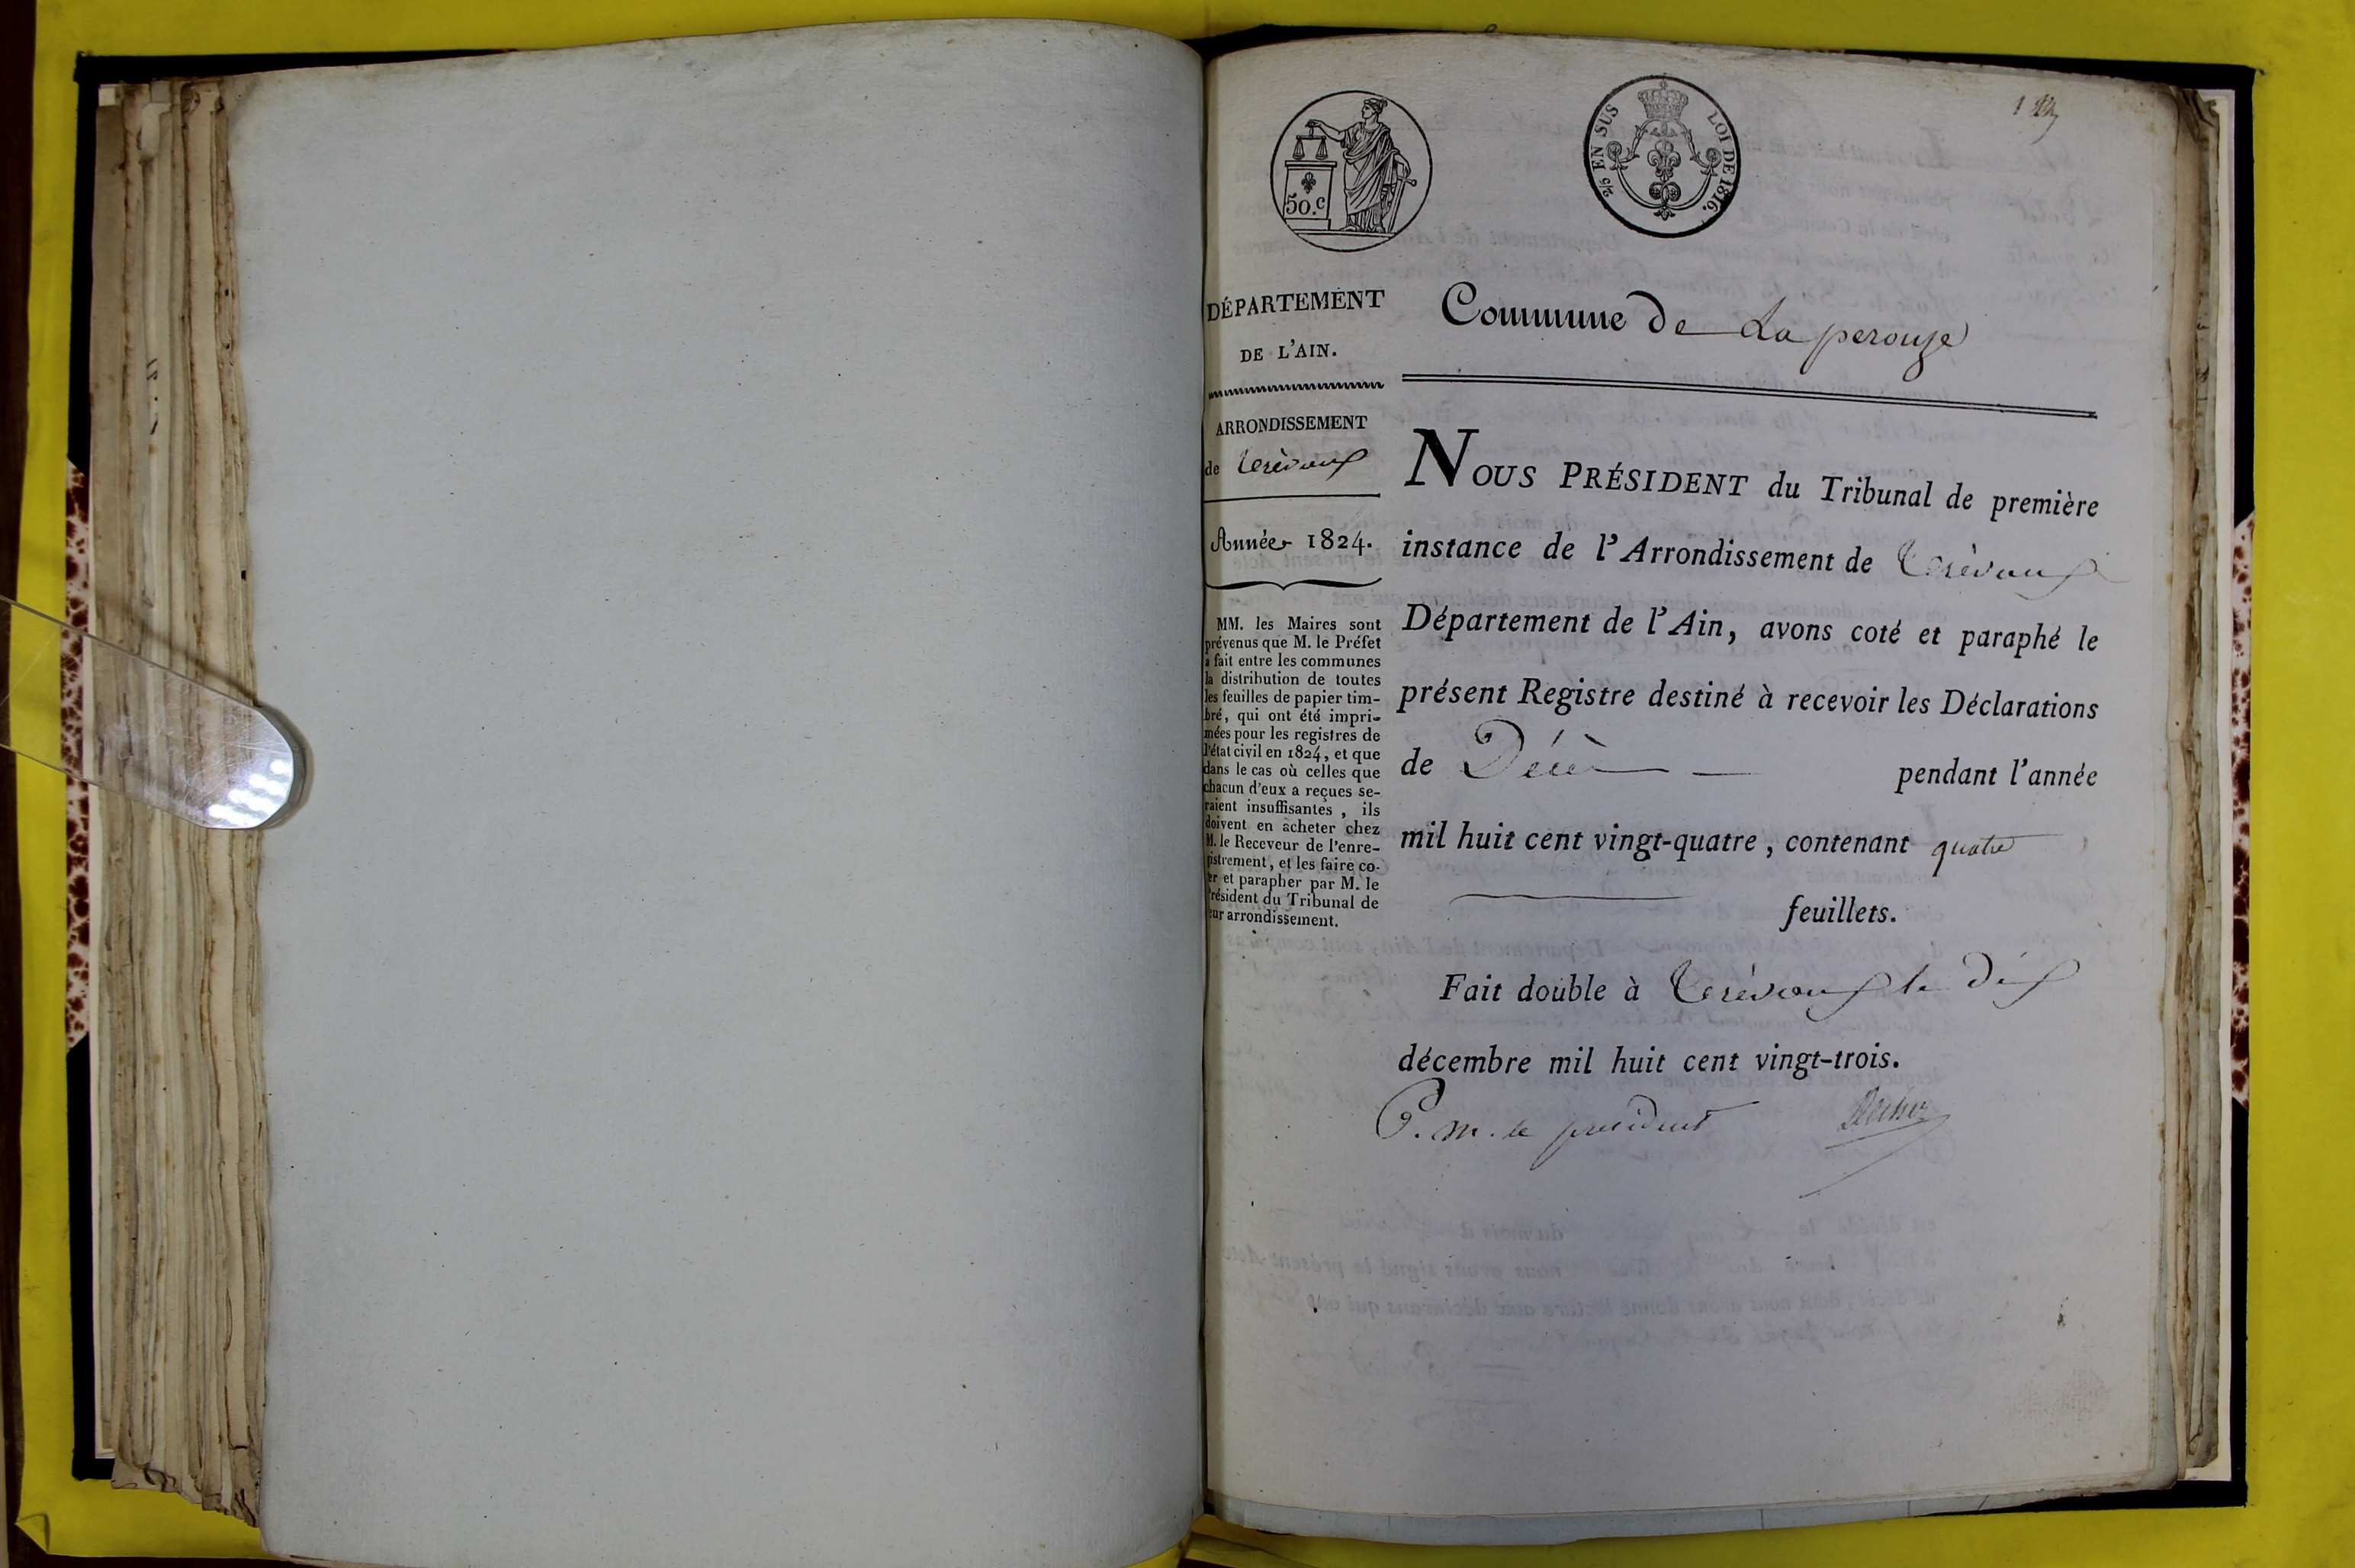 50.c
2/5 EN SUS
LOI DE 1816.
DÉPARTEMENT
DE L'AIN.
ARRONDISSEMENT
de trévoux
Année 1824.
MM. les Maires sont
prévenus que M. le Préfet
a fait entre les communes
la distribution de toutes
les feuilles de papier tim-
bré, qui ont été impri-
mées pour les registres de
l'état civil en 1824, et que
dans le cas où celles que
chacun d'eux a reçues se-
raient insuffisantes, ils
doivent en acheter chez
M. le Receveur de l'enre-
gistrement, et les faire co-
ter et parapher par M. le
Président du Tribunal de
leur arrondissement.
Commune de La perouze
NOUS PRÉSIDENT du Tribunal de première
instance de l'Arrondissement de trévoux
Département de l'Ain, avons coté et paraphé le
présent Registre destiné à recevoir les Déclarations
de Décès pendant l'année
mil huit cent vingt-quatre, contenant quatre
feuillets.
Fait double à trévoux le dix
décembre mil huit cent vingt-trois.
P. M. le président